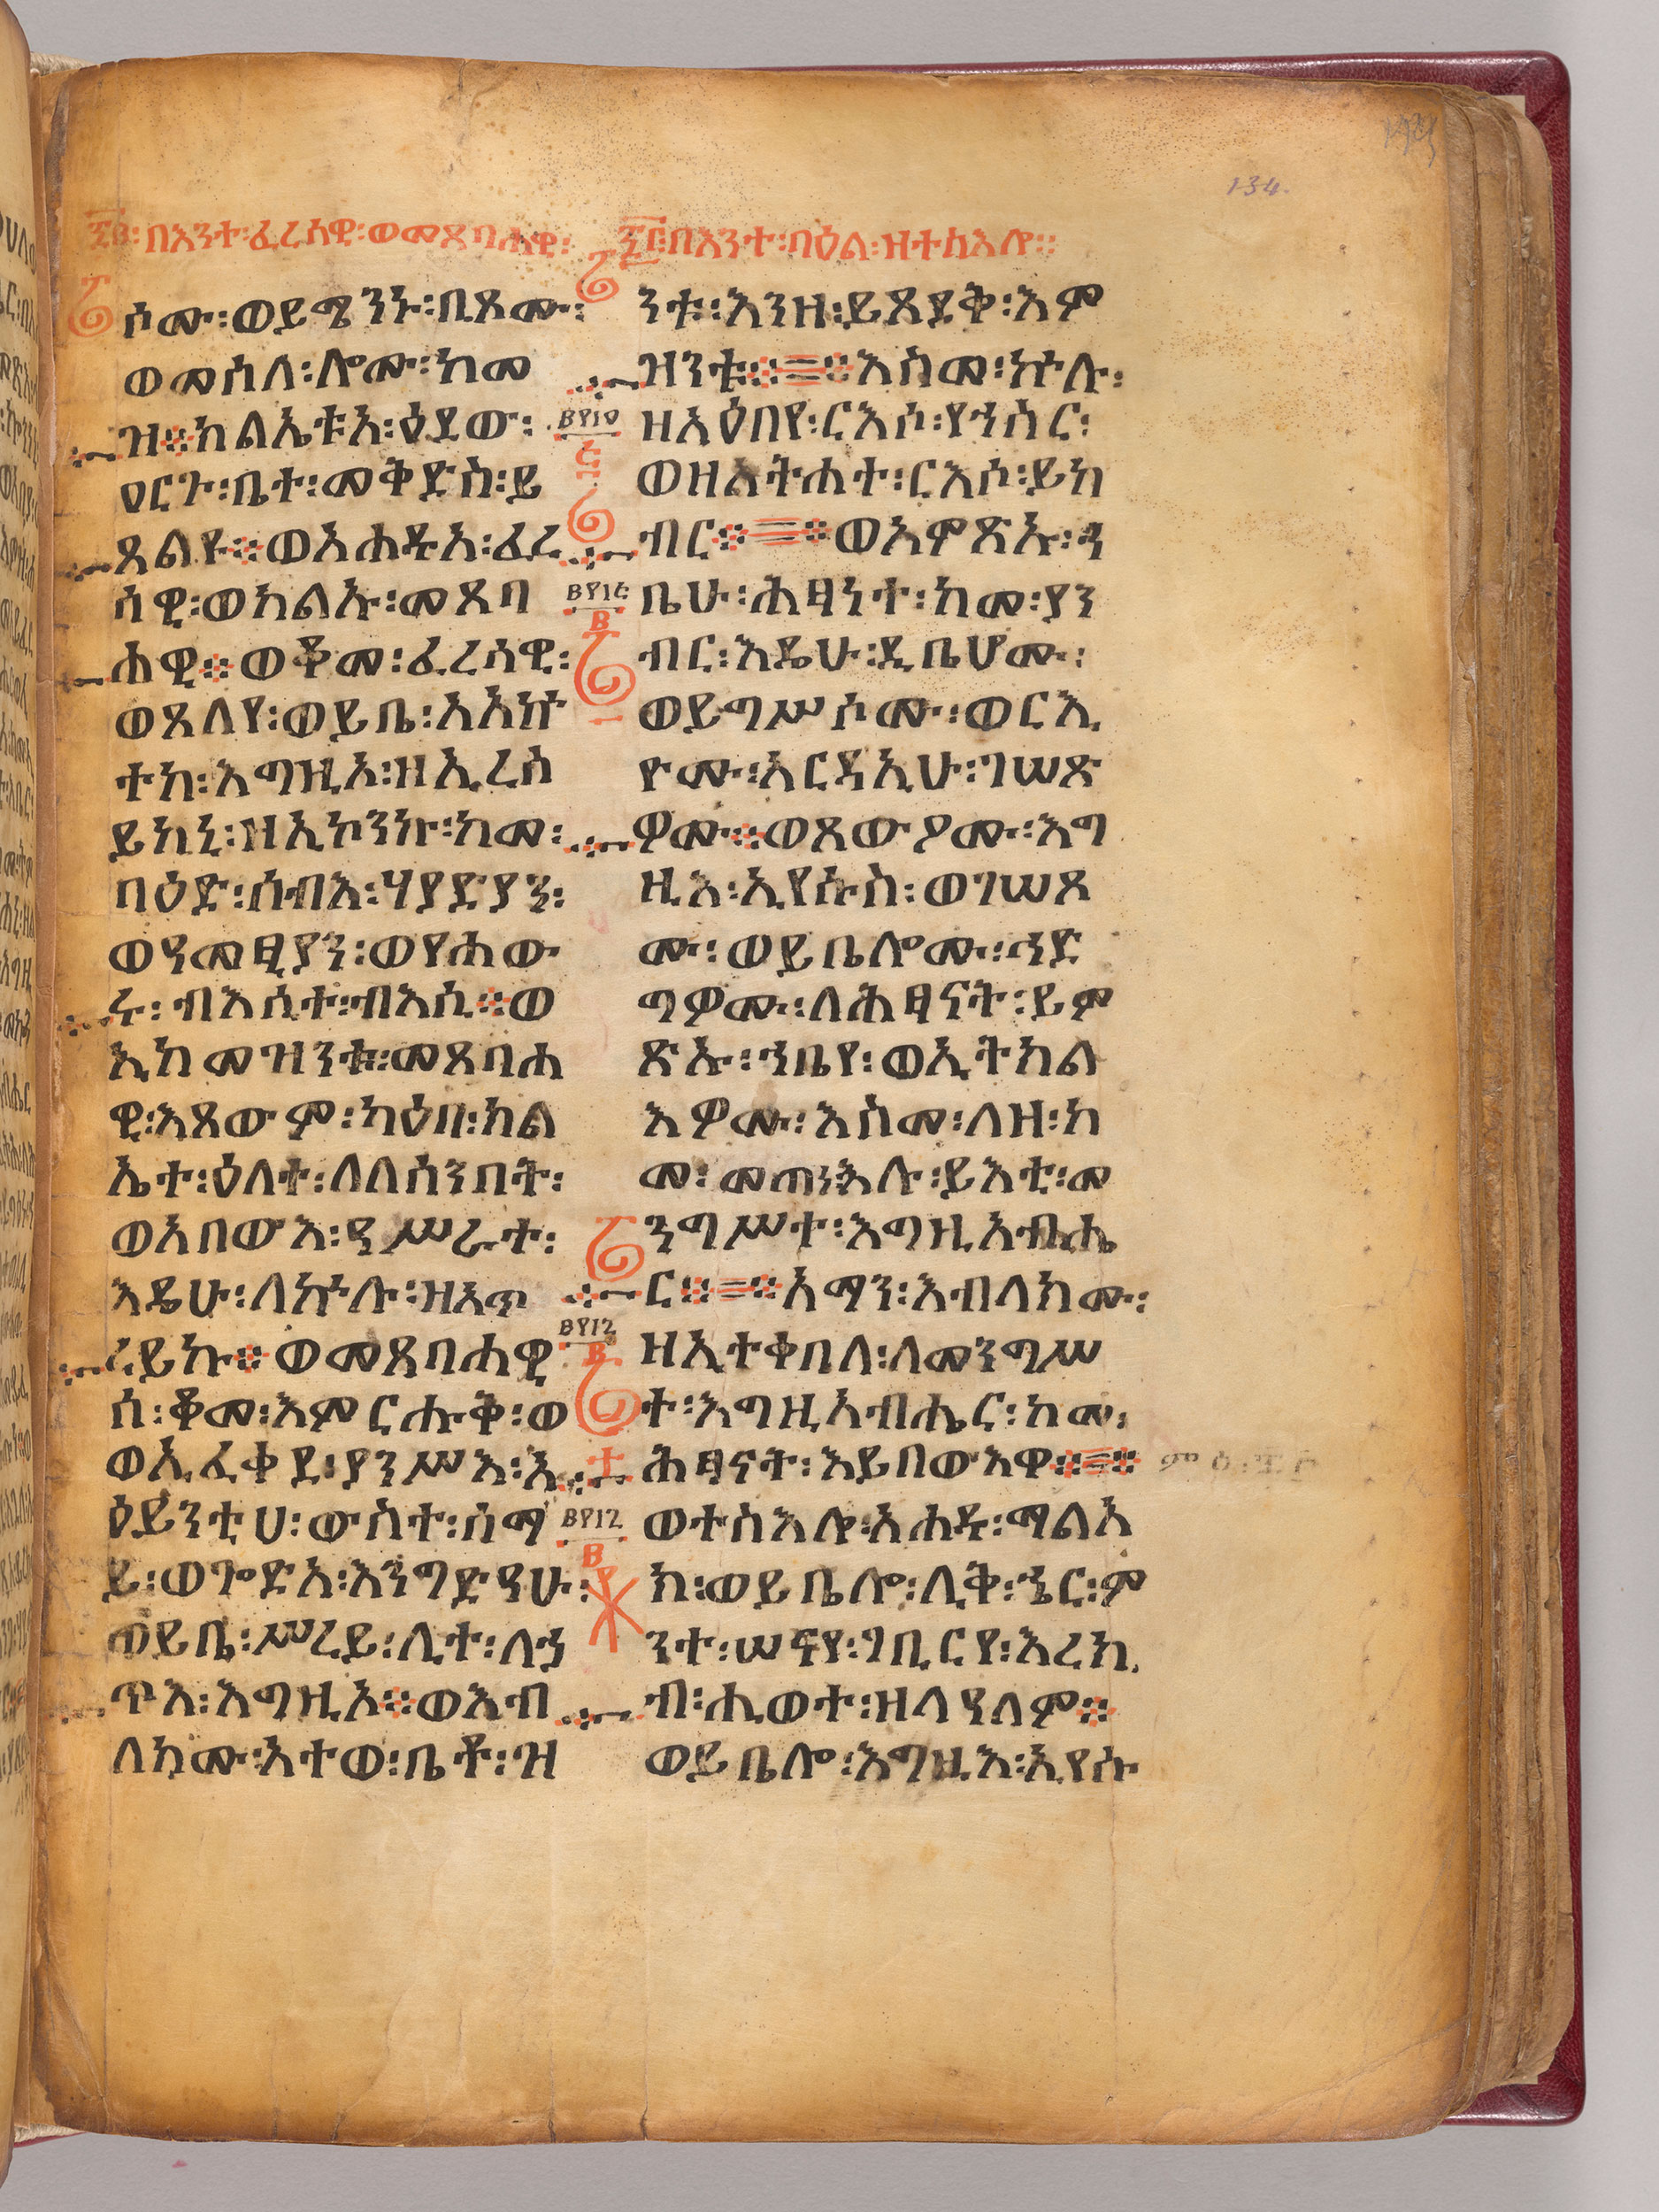 134.
፶፱፡በእንተ፡ፈሪሳዊ፡ወመጸባሓዊ፡
፷፡በእንተ፡ባዕል፡ዘተስእሎ።
ሶሙ፡ወይሜንኑ፡ቢጾሙ፡
ወመሰለ፡ሎሙ፡ከመ
ዝ፨ክልኤቱእ፡ዕደው፡
ዐርጉ፡ቤተ፡መቅደስ፡ይ
ጸልዩ፨ወአሐዱእ፡ፈሪ
ሳዊ፡ወካልኡ፡መጸባ
ሐዊ፨ወቆመ፡ፈሪሳዊ፡
ወጸለየ፡ወይቤ፡አአኵ
ተከ፡እግዚኦ፡ዘኢረሰ
ይከኒ፡ዘኢኮንኩ፡ከመ፡
ባዕድ፡ሰብእ፡ሃያድያን፡
ወዓመፂያን፡ወየሐው
ሩ፡ብእሲተ፡ብእሲ፨ወ
ኢከመዝንቱ፡መጸባሐ
ዊ፡እጸውም፡ካዕበ፡ክል
ኤተ፡ዕለተ፡ለለሰንበት፡
ወአበውእ፡ዓሥራተ፡
እዴሁ፡ለኵሉ፡ዘአጥ
ረይኩ፨ወመጸባሐዊ
ሰ፡ቆመ፡እምርሑቅ፡ወ
ወኢፈቀደ፡ያንሥእ፡አ
ዕይንቲሀ፡ውስተ፡ሰማ
ይ፡ወጐድአ፡እንግድዓሁ፡
ወይቤ፡ሥረይ፡ሊተ፡ለኃ
ጥእ፡እግዚኦ፨ወእብ
ለክሙ፡አተወ፡ቤቶ፡ዝ
ንቱ፡እንዘ፡ይጸድቅ፡እም
ዝንቱ፨እስመ፡ኵሉ፡
ዘአዕበየ፡ርእሶ፡የኀስር፡
ወዘአትሐተ፡ርእሶ፡ይከ
ብር፨ወአምጽኡ፡ኀ
ቤሁ፡ሕፃነተ፡ከመ፡ያን
ብር፡እዴሁ፡ዲቤሆሙ፡
ወይግሥሶሙ፡ወርኢ
ዮሙ፡አርዳኢሁ፡ገሠጽ
ዎሙ፨ወጸውዖሙ፡እግ
ዚእ፡ኢየሱስ፡ወገሠጸ
ሙ፡ወይቤሎሙ፡ኅድ
ግዎሙ፡ለሕፃናት፡ይም
ጽኡ፡ኀቤየ፡ወኢትክል
እዎሙ፡እስመ፡ለዘ፡ከ
መ፡መጠነ፡እሉ፡ይእቲ፡መ
ንግሥተ፡እግዚአብሔ
ር፨አማን፡እብለክሙ፡
ዘኢተቀበለ፡ለመንግሥ
ተ፡እግዚአብሔር፡ከመ፡
ሕፃናት፡ኢይበውአዋ፨
ወተስእሎ፡አሐዱ፡ማልአ
ክ፡ወይቤሎ፡ሊቅ፡ኄር፡ም
ንተ፡ሠናየ፡ገቢርየ፡እረክ
ብ፡ሒወተ፡ዘለዓለም፨
ወይቤሎ፡እግዚእ፡ኢየሱ